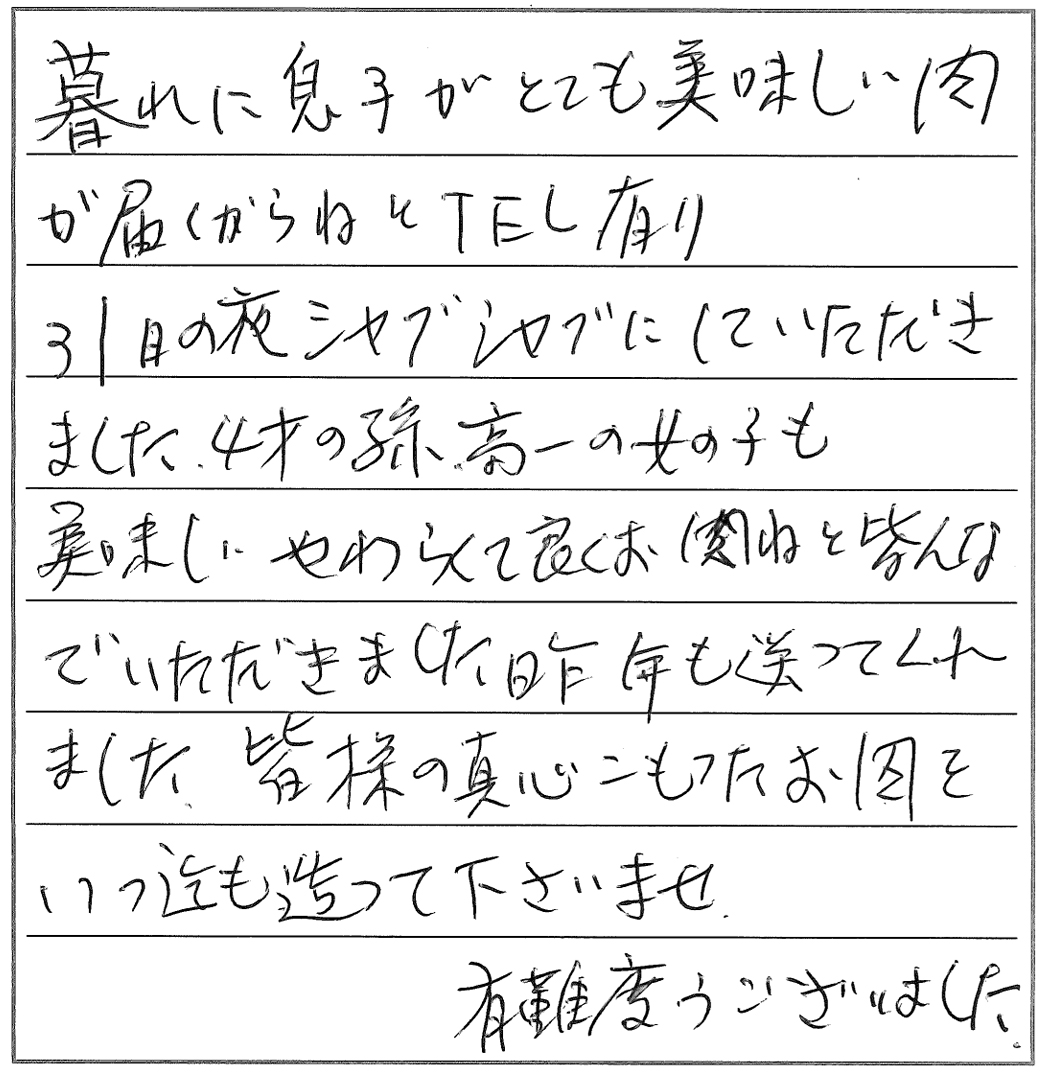 暮れに息子がとても美味しい肉
が届くからねとTEL有り
31日の夜シャブシャブにしていただき
ました.4才の孫.高一の女の子も
美味しいやわらくて良くお肉ねと皆んな
でいただきました昨年も送ってくれ
ました.皆様の真心こもったお肉を
いつ迄も造って下さいませ.
有難度うございました.